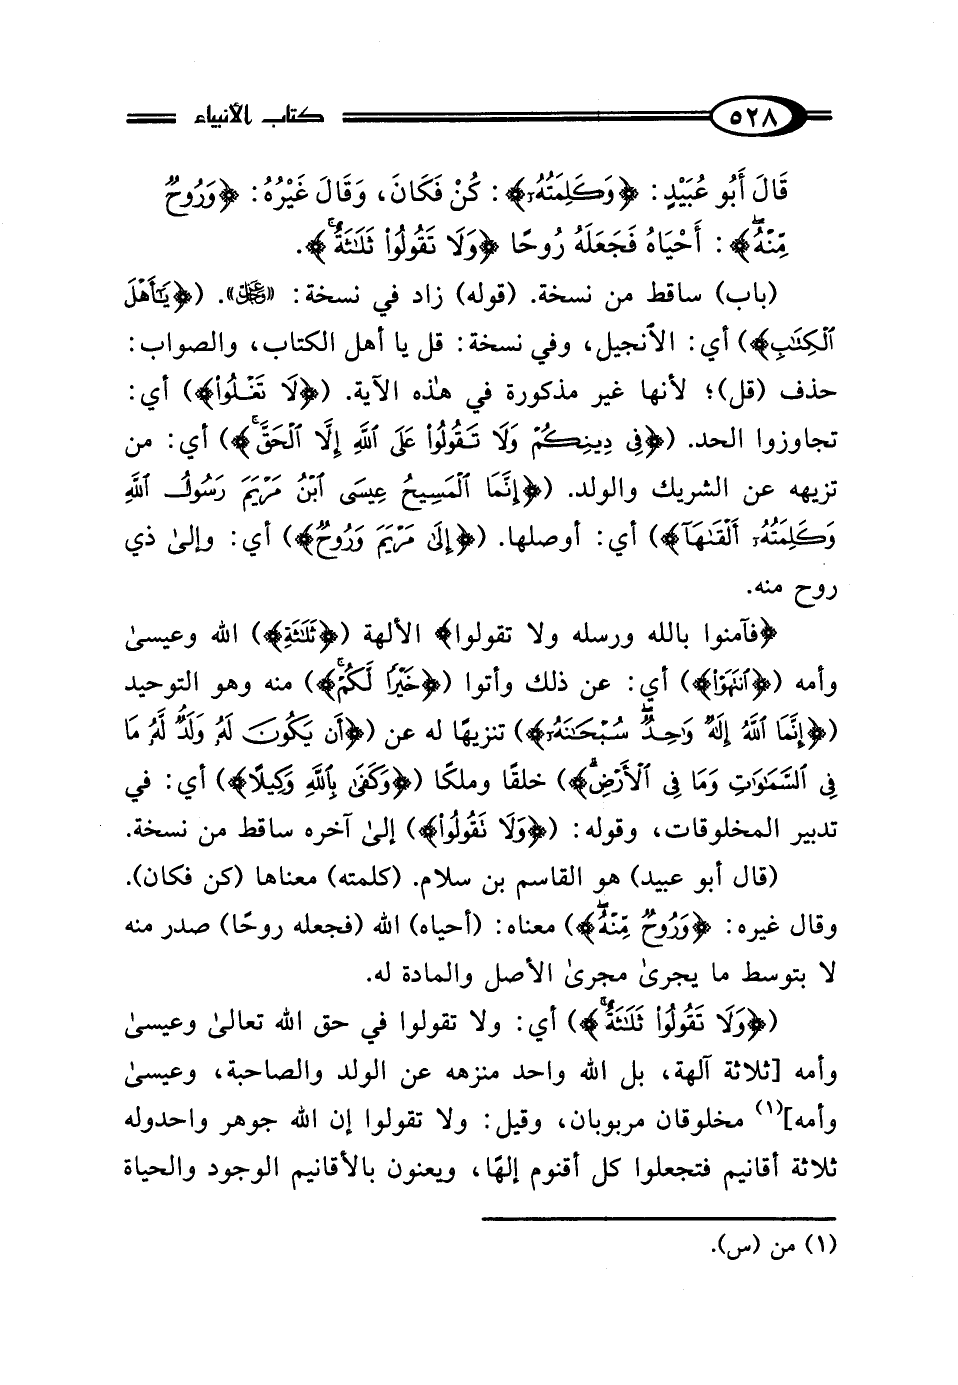 ٥٢٨ كتاب الأنبياء
قَالَ أَبُو عُبَيْدٍ: ﴿وَكَلِمَتُهُۥ﴾: كُنْ فَكَانَ، وَقَالَ غَيْرُهُ: ﴿وَرُوحٌ
مِّنْهُۖ﴾: أَحْيَاهُ فَجَعَلَهُ رُوحًا ﴿وَلَا تَقُولُوا۟ ثَلَٰثَةٌۚ﴾.
(باب) ساقط من نسخة. (قوله) زاد في نسخة: «ﷻ». (﴿يَٰٓأَهْلَ
ٱلْكِتَٰبِ﴾) أي: الأنجيل، وفي نسخة: قل يا أهل الكتاب، والصواب:
حذف (قل)؛ لأنها غير مذكورة في هذه الآية. (﴿لَا تَغْلُوا۟﴾) أي:
تجاوزوا الحد. (﴿فِى دِينِكُمْ وَلَا تَقُولُوا۟ عَلَى ٱللَّهِ إِلَّا ٱلْحَقَّۚ﴾) أي: من
تزيهه عن الشريك والولد. (﴿إِنَّمَا ٱلْمَسِيحُ عِيسَى ٱبْنُ مَرْيَمَ رَسُولُ ٱللَّهِ
وَكَلِمَتُهُۥٓ أَلْقَىٰهَآ﴾) أي: أوصلها. (﴿إِلَىٰ مَرْيَمَ وَرُوحٌ﴾) أي: وإلىٰ ذي
روح منه.
﴿فآمنوا بالله ورسله ولا تقولوا﴾ الألهة (﴿ثَلَٰثَةٌ﴾) الله وعيسىٰ
وأمه (﴿ٱنتَهُوا۟﴾) أي: عن ذلك وأتوا (﴿خَيْرًا لَّكُمْۚ﴾) منه وهو التوحيد
(﴿إِنَّمَا ٱللَّهُ إِلَٰهٌ وَٰحِدٌۖ سُبْحَٰنَهُۥٓ﴾) تنزيهًا له عن (﴿أَن يَكُونَ لَهُۥ وَلَدٌۘ لَّهُۥ مَا
فِى ٱلسَّمَٰوَٰتِ وَمَا فِى ٱلْأَرْضِۗ﴾) خلقًا وملكًا (﴿وَكَفَىٰ بِٱللَّهِ وَكِيلًا﴾) أي: في
تدبير المخلوقات، وقوله: (﴿وَلَا تَقُولُوا۟﴾) إلىٰ آخره ساقط من نسخة.
(قال أبو عبيد) هو القاسم بن سلام. (كلمته) معناها (كن فكان).
وقال غيره: ﴿وَرُوحٌ مِّنْهُۖ﴾) معناه: (أحياه) الله (فجعله روحًا) صدر منه
لا بتوسط ما يجرىٰ مجرىٰ الأصل والمادة له.
(﴿وَلَا تَقُولُوا۟ ثَلَٰثَةٌۚ﴾) أي: ولا تقولوا في حق الله تعالىٰ وعيسىٰ
وأمه [ثلاثة آلهة، بل الله واحد منزهه عن الولد والصاحبة، وعيسىٰ
وأمه](١) مخلوقان مربوبان، وقيل: ولا تقولوا إن الله جوهر واحدوله
ثلاثة أقانيم فتجعلوا كل أقنوم إلهًا، ويعنون بالأقانيم الوجود والحياة
(١) من (س).